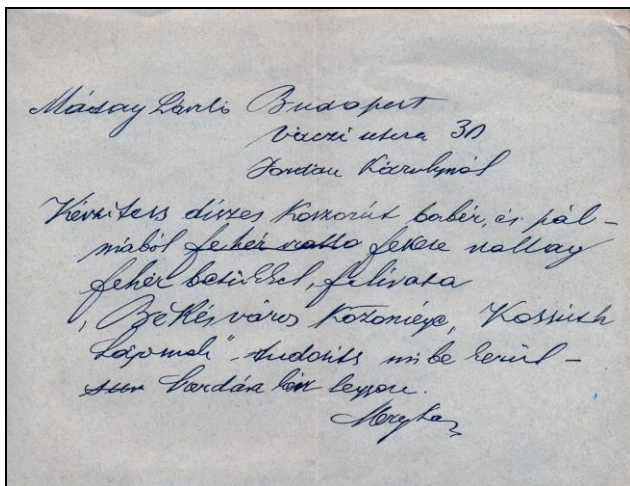 Mázsay Laczi Budapest
Váczi utcza 30
Jordán Károlynál
Készítess díszes koszorút babér, és pál-
mából fehér fekete vallag
fehér betükkel, felirata
„Békésváros közönsége, Kossuth
Lajosnak" tudosits mibe kerül -
hordára kész legyen.